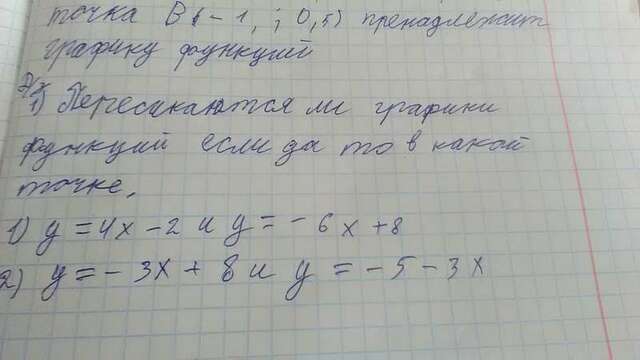 точка В (-1, ; 0,5) пренадлежит
графику функций
Д/з
1) Пересикаются ли графики
функций если да то в какой
точке,
1) y = 4x - 2 и y = - 6x + 8
2) y = - 3x + 8 и y = - 5 - 3x